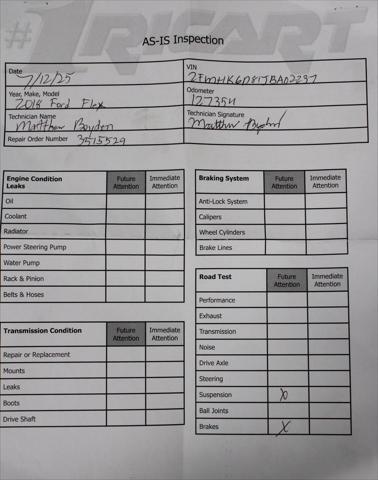 #1 RICART
AS-IS Inspection
Date 7/12/25
VIN
Year, Make, Model 2018 Ford Flex
Odometer 127354
Technician Name Matthew Boyden
Technician Signature Matthew
Repair Order Number 3515529
Engine Condition Leaks Future Attention Immediate Attention
Oil
Coolant
Radiator
Power Steering Pump
Water Pump
Rack & Pinion
Belts & Hoses
Transmission Condition Future Attention Immediate Attention
Repair or Replacement
Mounts
Leaks
Boots
Drive Shaft
Braking System Future Attention Immediate Attention
Anti-Lock System
Calipers
Wheel Cylinders
Brake Lines
Road Test Future Attention Immediate Attention
Performance
Exhaust
Transmission
Noise
Drive Axle
Steering
Suspension X
Ball Joints
Brakes X